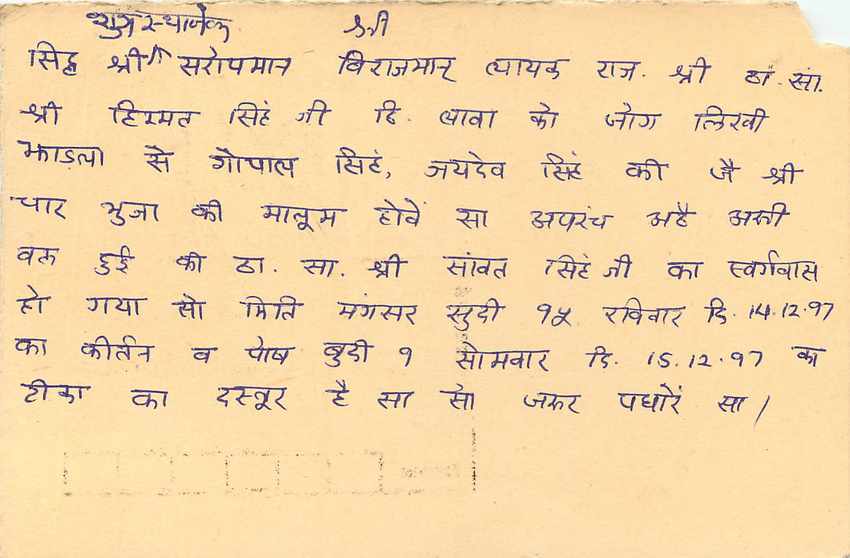 शुभ स्थानेक श्री
सिद्ध श्री सरोपमान बिराजमान् लायक राज. श्री ठा. सा.
श्री हिम्मत सिहं जी ठि. लावा को जोग लिखी
झाडला से गोपाल सिहं, जयदेव सिहं की जै श्री
चार भुजा की मालूम होवें सा अपरंच अठै असी
वक हुई की ठा. सा. श्री सांवत सिहं जी का स्वर्गवास
हो गया सो मिति मंगसर सुदी १५ रविवार दि. 14.12.97
का कीर्तन व पोष बुदी १ सोमवार दि. 15.12.97 का
टीका का दस्तूर है सा सो जरूर पधारें सा /